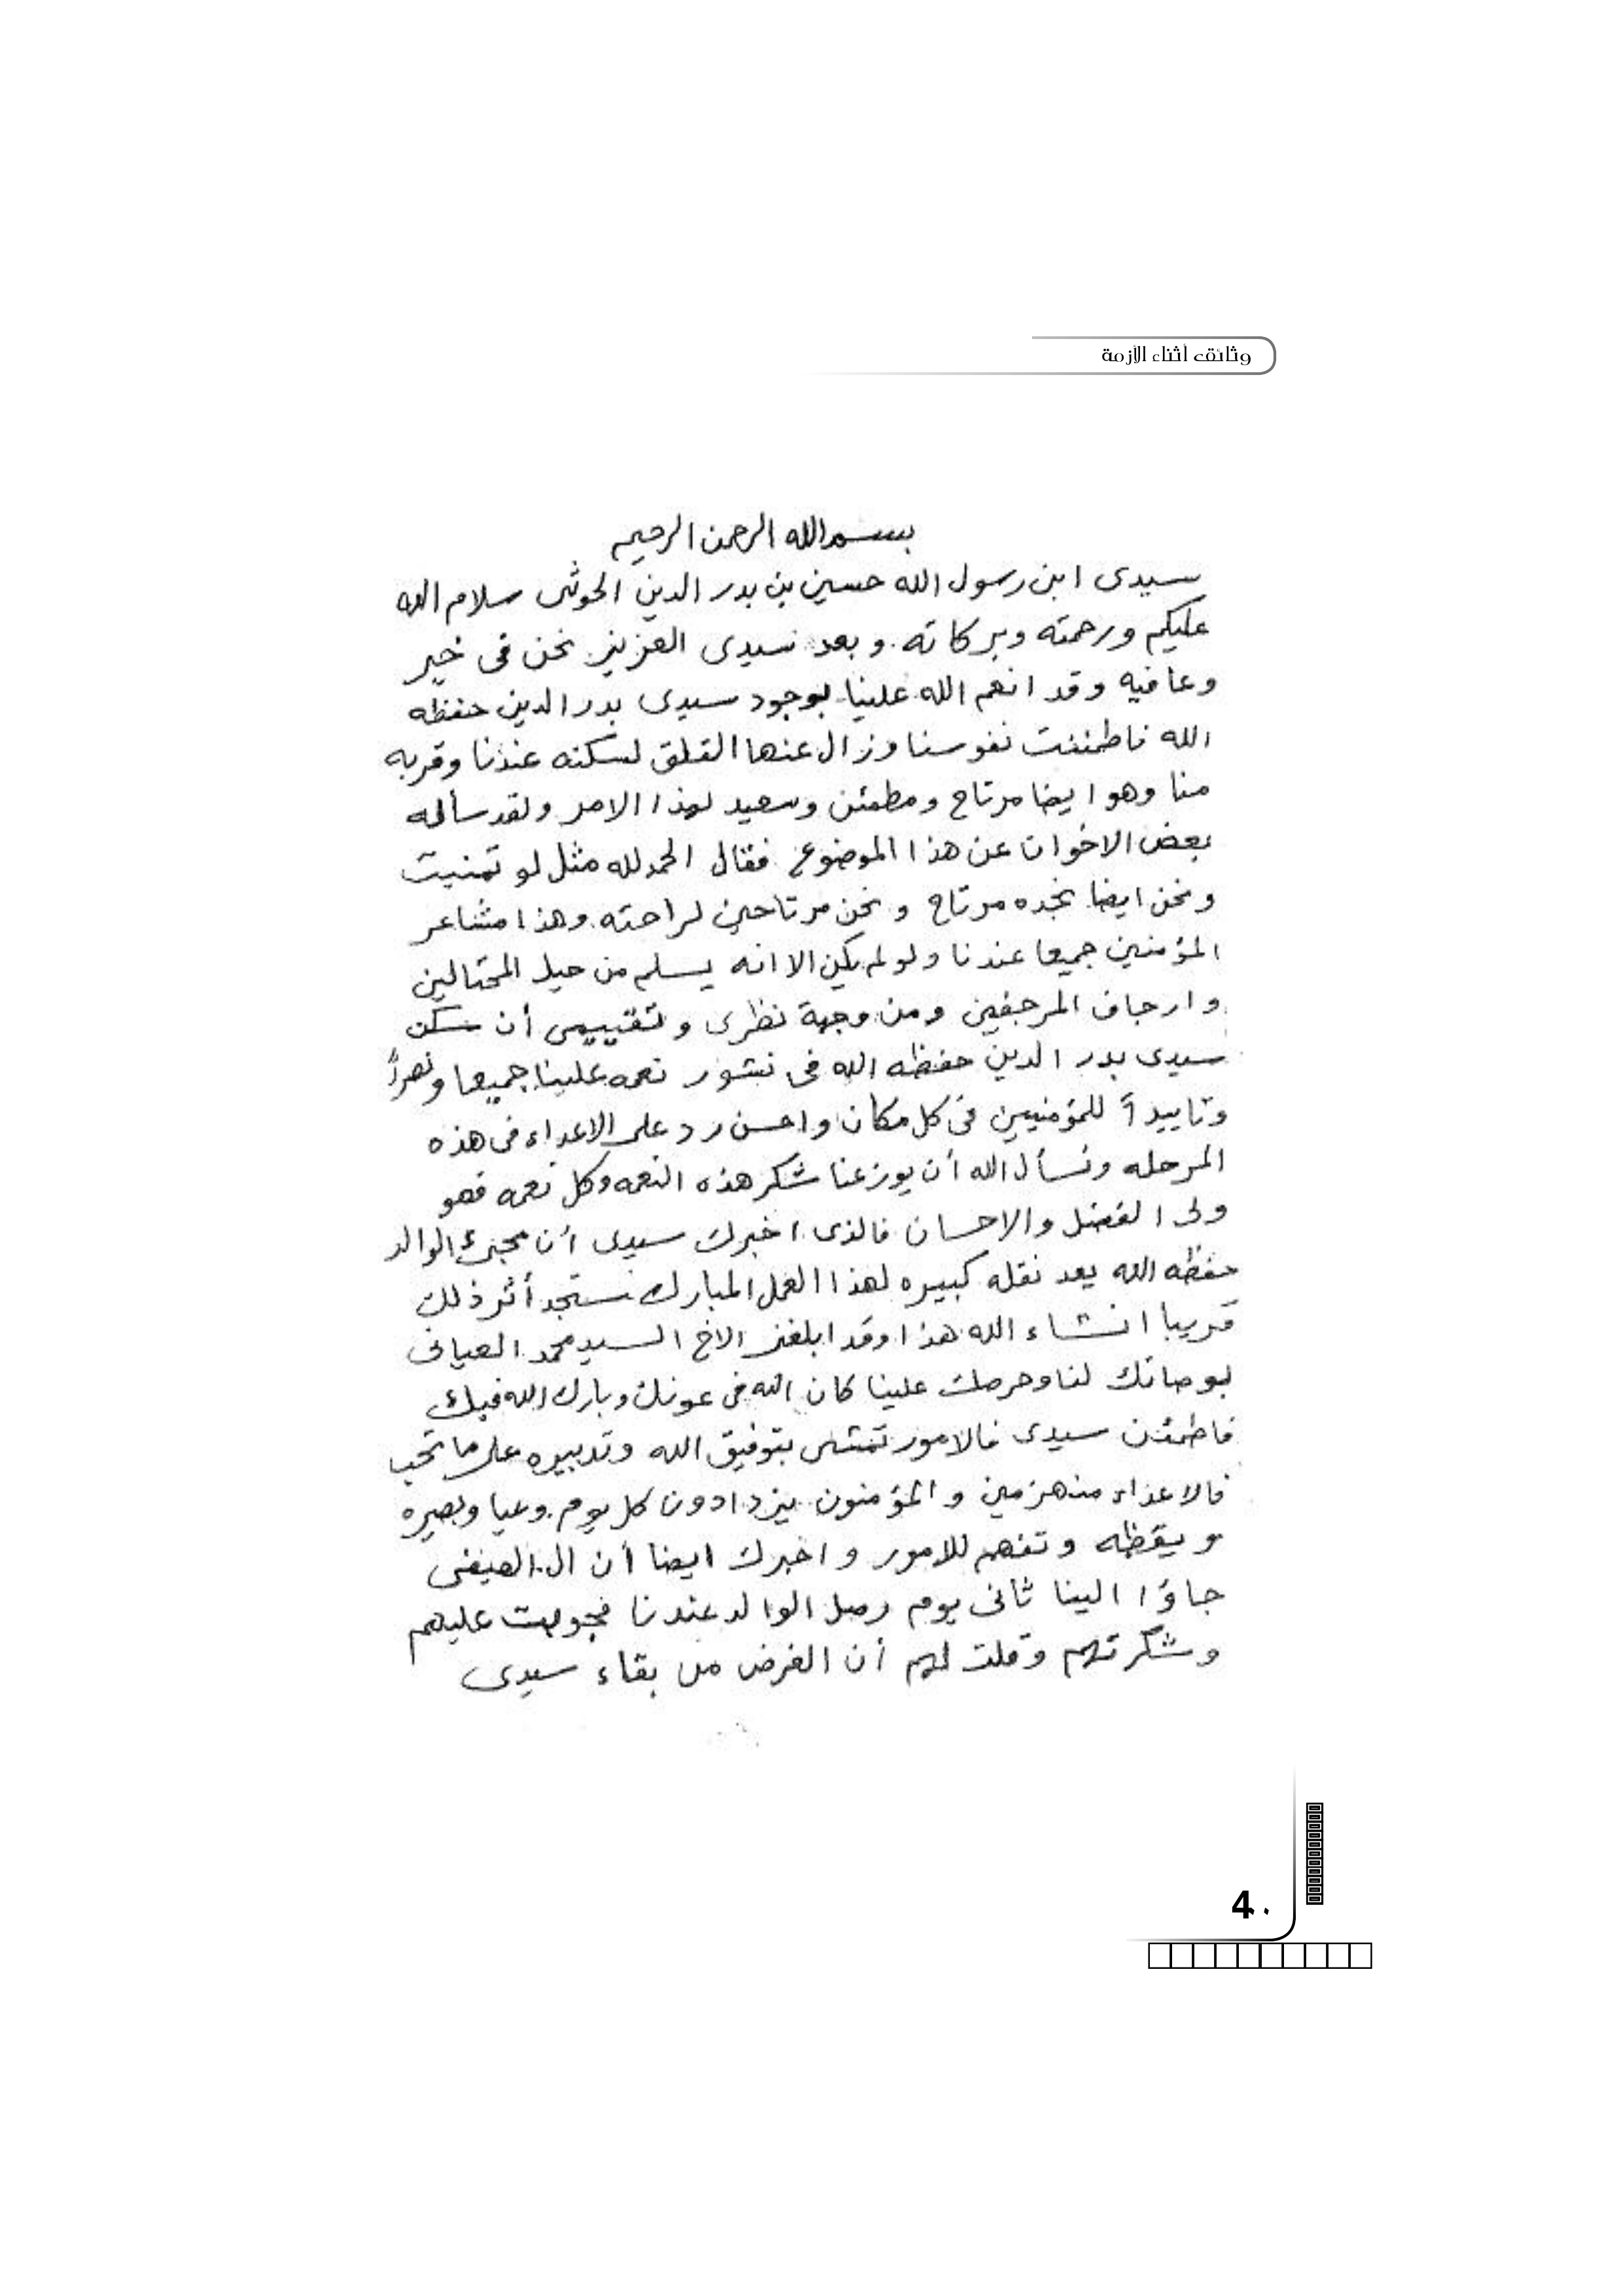 وثائق أثناء الأزمة
بسم الله الرحمن الرحيم
سيدى ابن رسول الله حسين بن بدر الدين الحوثى سلام الله
عليكم ورحمته وبركاته. وبعد سيدى العزيز نحن فى خير
وعافيه وقد انعم الله علينا بوجود سيدى بدر الدين حفظه
الله فاطمئنت نفوسنا وزال عنها القلق لسكنه عندنا وقربه
منا وهو ايضا مرتاح ومطمئن وسعيد لهذا الامر ولقد سأله
بعض الاخوان عن هذا الموضوع فقال الحمد لله مثل لو تمنيت
ونحن ايضا نجده مرتاح ونحن مرتاحين لراحته. وهذا مشاعر
المؤمنين جميعا عندنا ولو لم يكن الا انه يسلم من حيل المحتالين
وارجاف المرجفين ومن وجهة نظرى وتقييمى أن سكن
سيدى بدر الدين حفظه الله فى نشور نعمه علينا جميعا ونصراً
وتاييدأ للمؤمنيين فى كل مكان واحسن رد على الاعداء فى هذه
المرحله ونسأل الله أن يوزعنا شكر هذه النعمه وكل نعمه فهو
ولى الفضل والاحسان فالذى اخبرك سيدى أن مجئ الوالد
حفظه الله يعد نقله كبيره لهذا العمل المبارك ستجد أثر ذلك
قريبا انشاء الله هذا وقد ابلغنى الاخ السيد محمد العيانى
بوصاتك لنا وحرصك علينا كان الله فى عونك وبارك الله فيك
فاطمئن سيدى فالامور تمشى بتوفيق الله وتدبيره على ما تحب
فالاعداء منهزمين والمؤمنون يزدادون كل يوم وعيا وبصيره
ويقظه وتفهم للامور واخبرك ايضا أن ال الصيفى
جاؤا الينا ثانى يوم وصل الوالد عندنا فجوبت عليهم
وشكرتهم وقلت لهم أن الغرض من بقاء سيدى
4٠